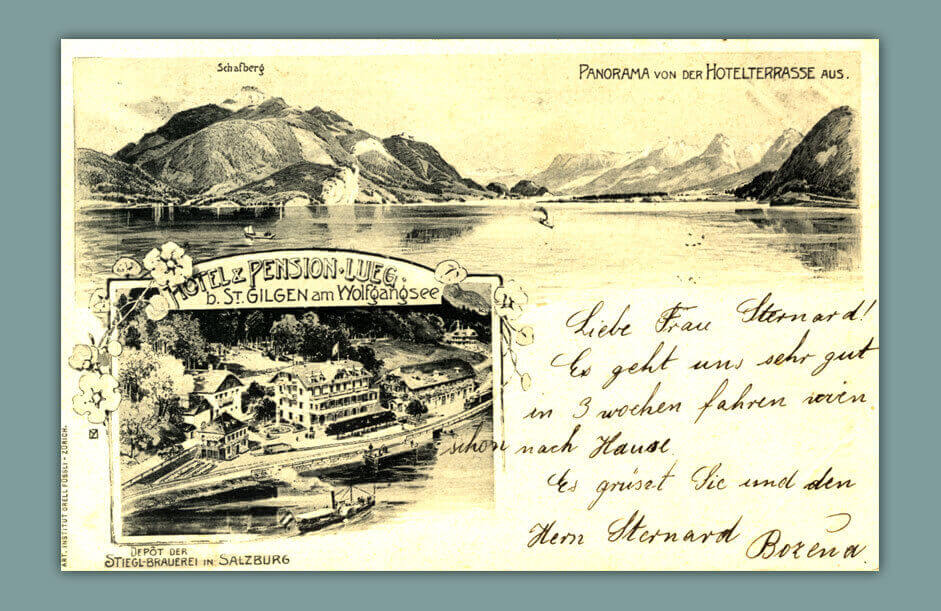 Schafberg
PANORAMA VON DER HOTELTERRASSE AUS.
HOTEL & PENSION·LUEG
b. ST. GILGEN am Wolfgangsee
Liebe Frau Sternard!
Es geht uns sehr gut
in 3 wochen fahren
schon nach Hause
Es grüszt Sie und den
Herrn Sternard
Bozena
ART. INSTITUT ORELL FÜSSLI - ZÜRICH.
DEPÔT DER
STIEGL-BRAUEREI IN SALZBURG